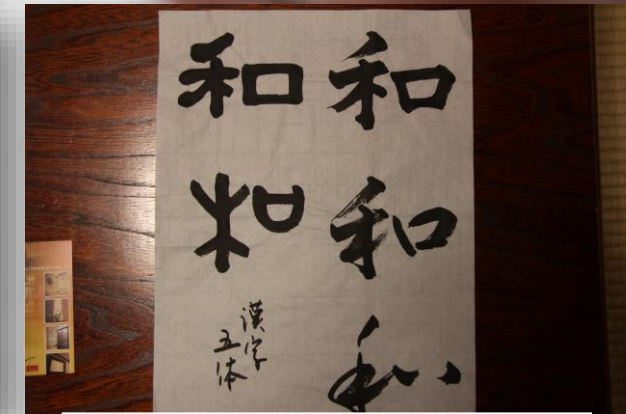 和
和
和
和
和
漢字
五体